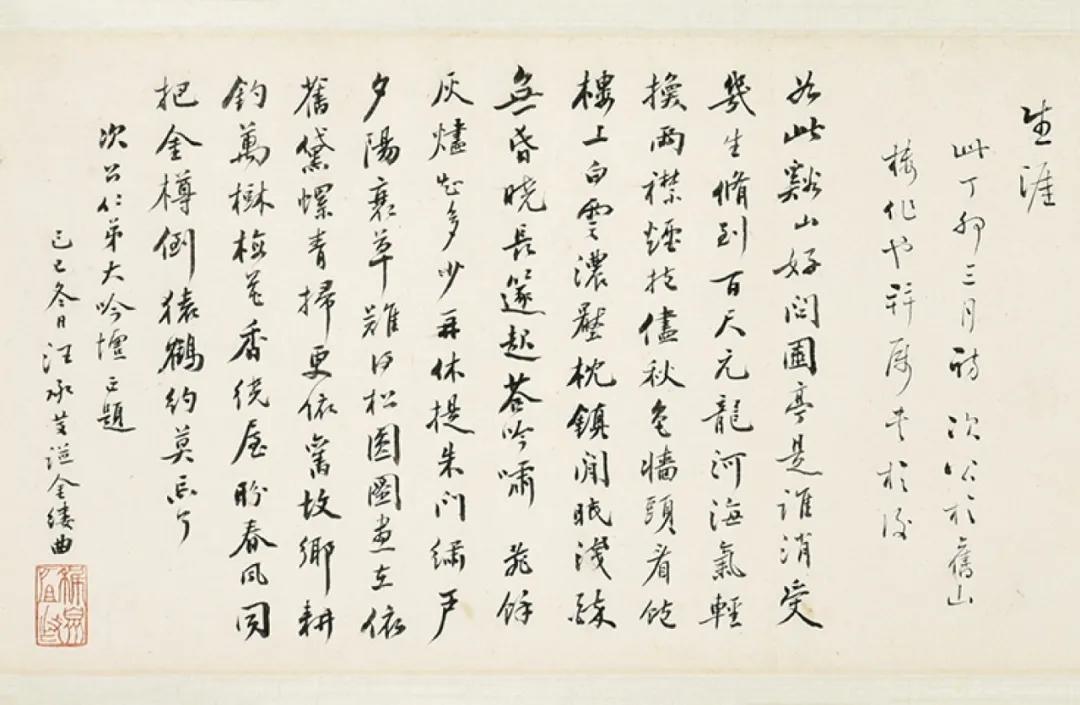 生涯
此丁卯三月訪次公於舊山
樓作也并屬書於後
如此谿山好問圃亭是誰消受
幾生脩到百尺元龍河海氣輕
換兩襟煙抱儘秋色牆頭看飽
樓上白雲濃壓枕鎮閒眠淺醉
無昏曉長篴起荅吟嘯 劫餘
灰燼知多少再休提朱門繡戶
夕陽衰草難得松圓圖畫在依
舊黛螺青掃更依舊故鄉耕
釣萬樹梅花香繞屋盼春風同
把金樽倒猿鶴約莫忘了
次公仁弟大吟壇正題
己巳冬日汪承金縷曲